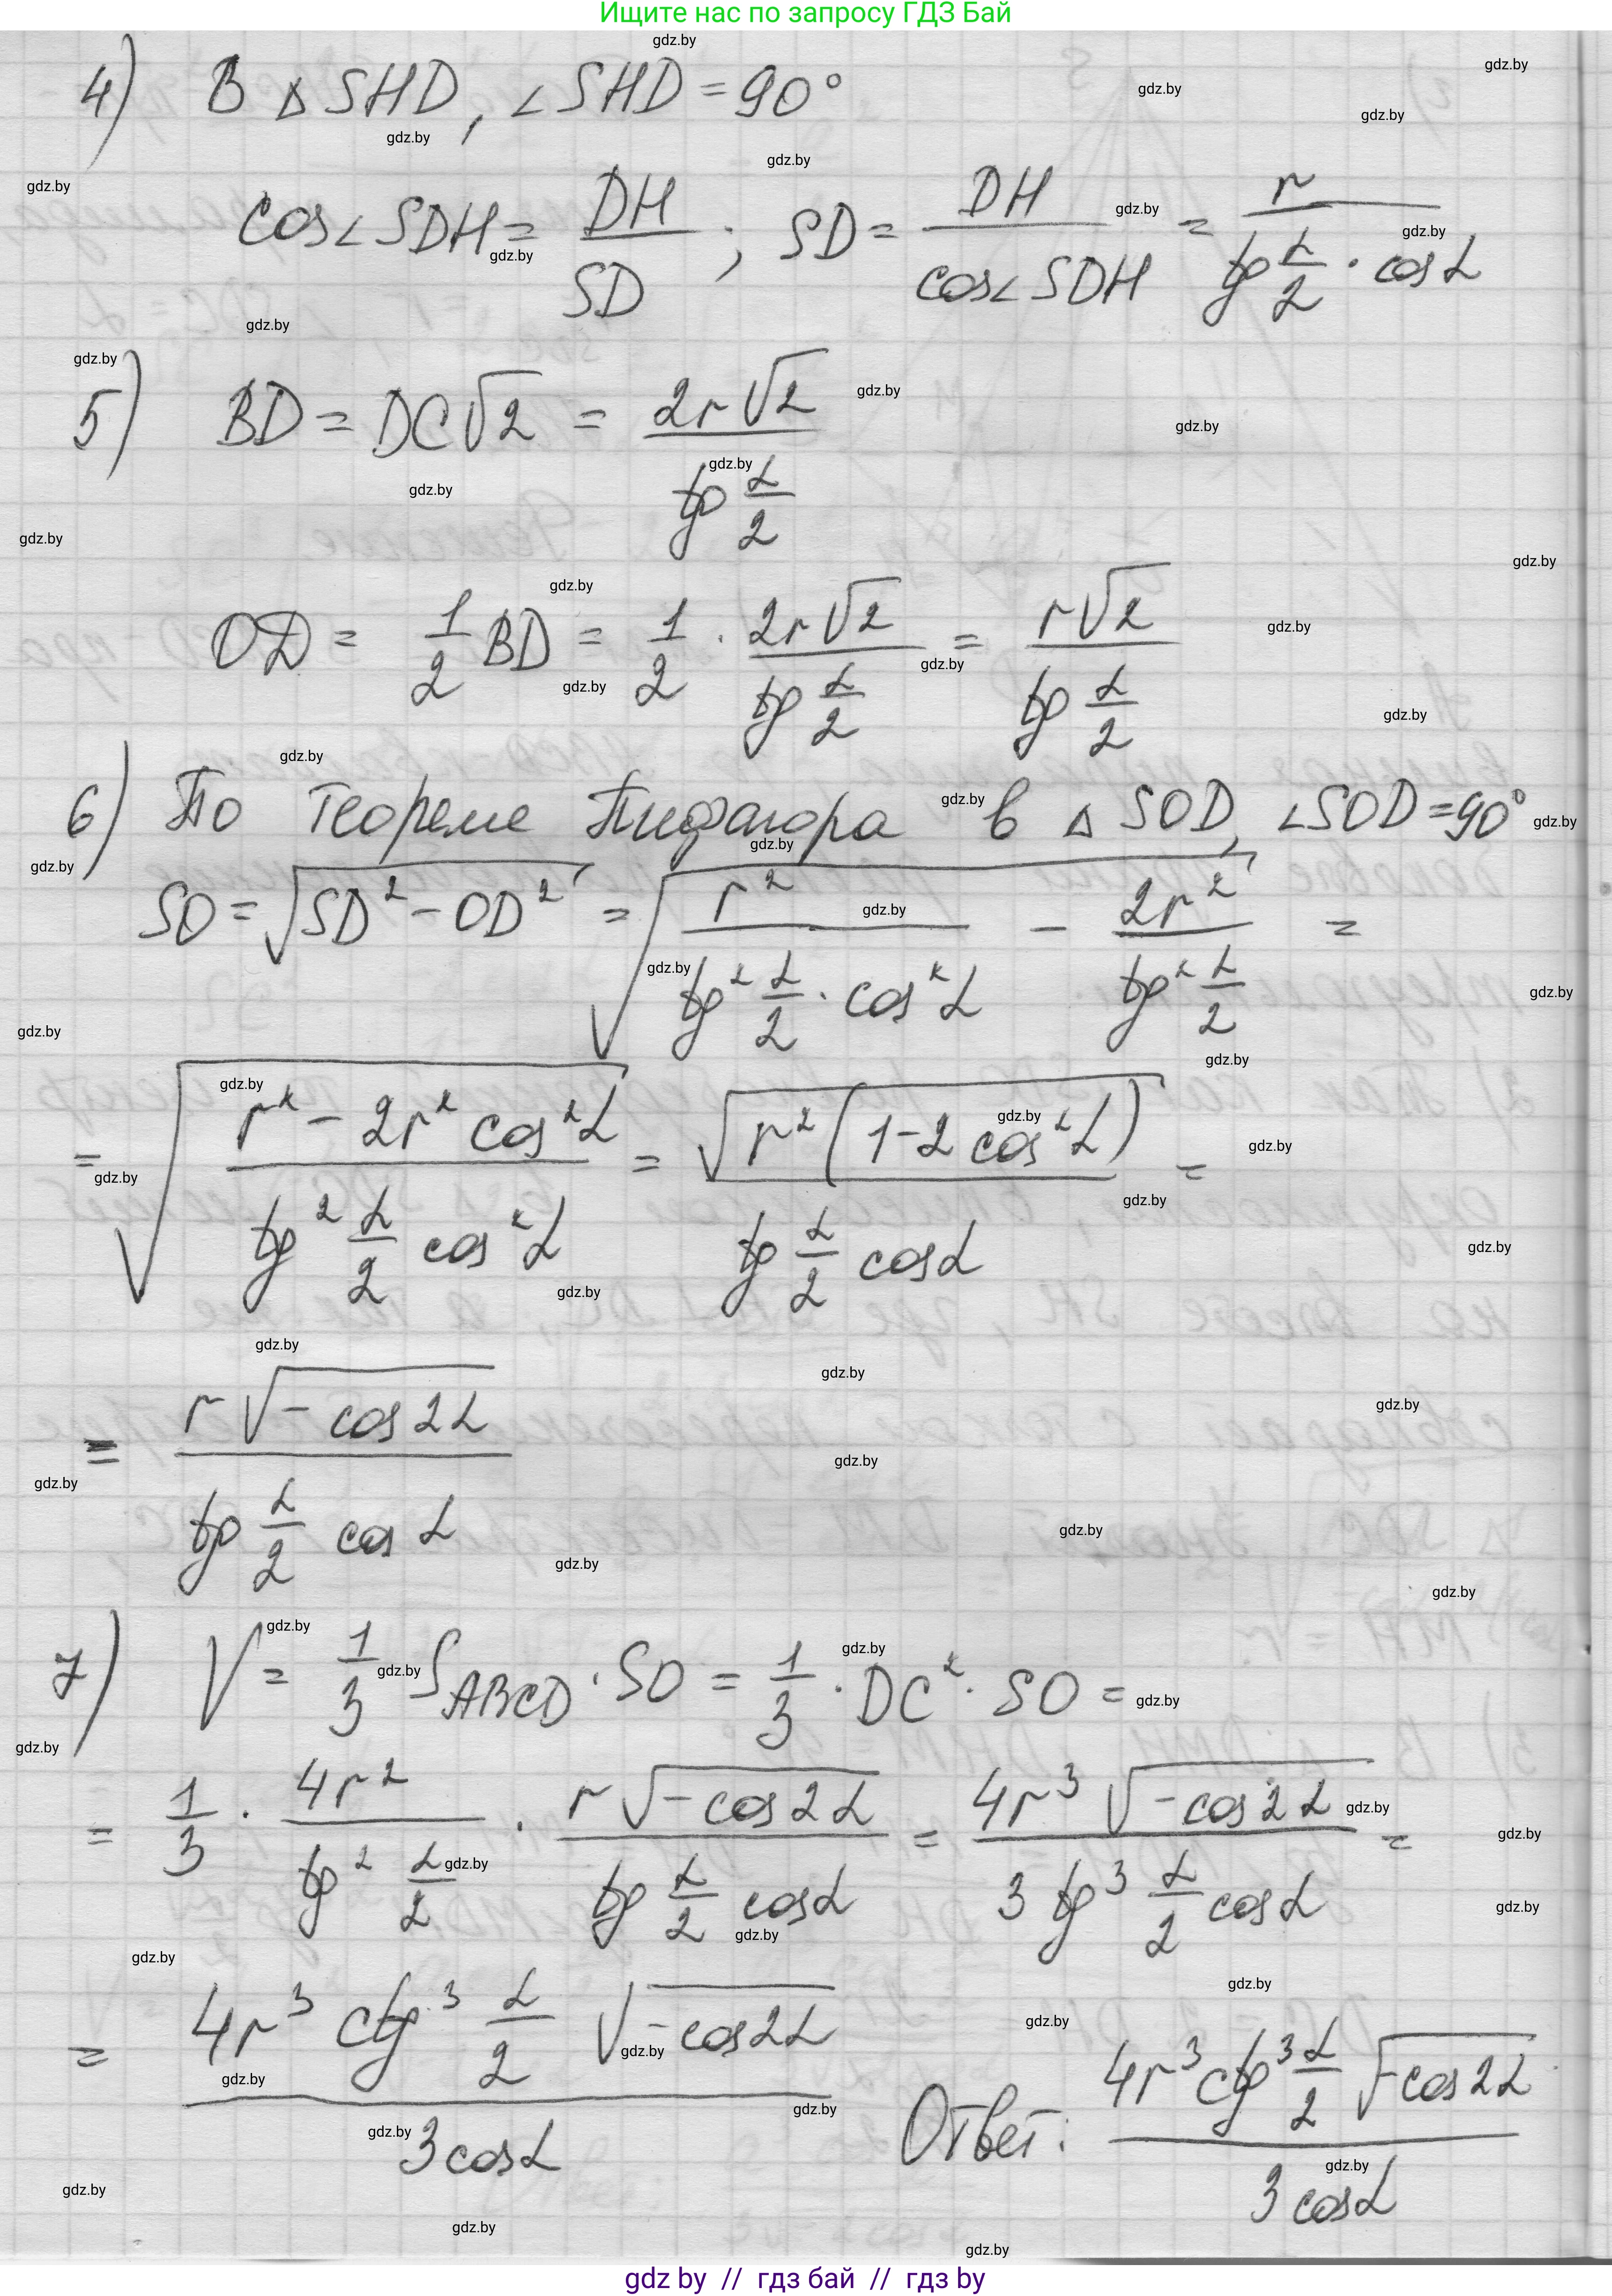 Ищите нас по запросу ГДЗ Бай
4) В △ SHD, ∠SHD = 90°
cos∠SDH = DH/SD ; SD = DH/cos∠SDH = r/(tg α/2 · cos α)
5) BD = DC√2 = 2r√2/(tg α/2)
OD = 1/2 BD = 1/2 · 2r√2/(tg α/2) = r√2/(tg α/2)
6) По теореме Пифагора в △ SOD, ∠SOD = 90°
SO = √(SD² - OD²) = √(r²/(tg² α/2 · cos² α) - 2r²/(tg² α/2)) =
= √((r² - 2r² cos² α)/(tg² α/2 cos² α)) = √(r²(1-2 cos² α))/(tg α/2 cos α) =
= r√(-cos 2α)/(tg α/2 cos α)
7) V = 1/3 S_ABCD · SO = 1/3 · DC² · SO =
= 1/3 · 4r²/(tg² α/2) · r√(-cos 2α)/(tg α/2 cos α) = 4r³√(-cos 2α)/(3 tg³ α/2 cos α) =
= 4r³ ctg³ α/2 √(-cos 2α)/(3 cos α)
Ответ: 4r³ ctg³ α/2 √(-cos 2α)/(3 cos α)
gdz by // гдз бай // гдз by